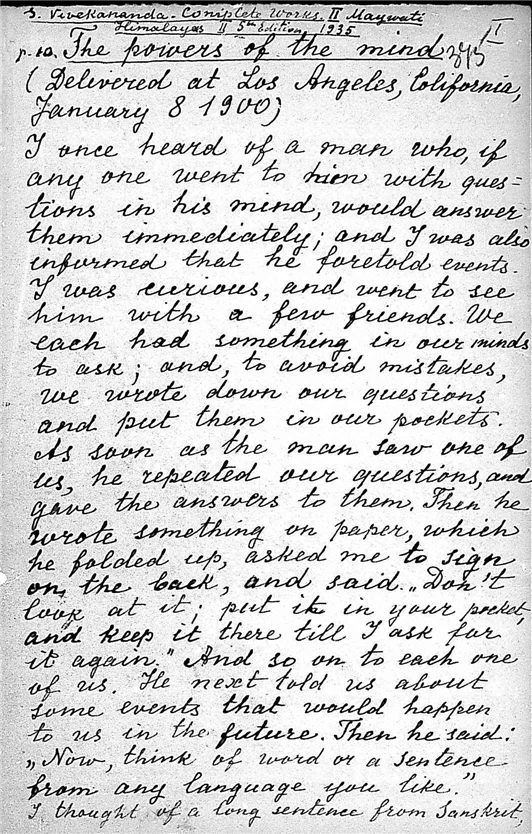 S. Vivekananda. Complete Works. II Maywati
Himalayas II 5th Edition, 1935
p. 10. The powers of the mind I
(Delivered at Los Angeles, California,
January 8 1900)
I once heard of a man who, if
any one went to him with ques=
tions in his mind, would answer
them immediately; and I was also
informed that he foretold events.
I was curious, and went to see
him with a few friends. We
each had something in our minds
to ask; and, to avoid mistakes,
we wrote down our questions
and put them in our pockets.
As soon as the man saw one of
us, he repeated our questions, and
gave the answers to them. Then he
wrote something on paper, which
he folded up, asked me to sign
on the back, and said „Don't
look at it; put it in your pocket,
and keep it there till I ask for
it again." And so on to each one
of us. He next told us about
some events that would happen
to us in the future. Then he said:
„Now, think of word or a sentence
from any language you like."
I thought of a long sentence from Sanskrit,